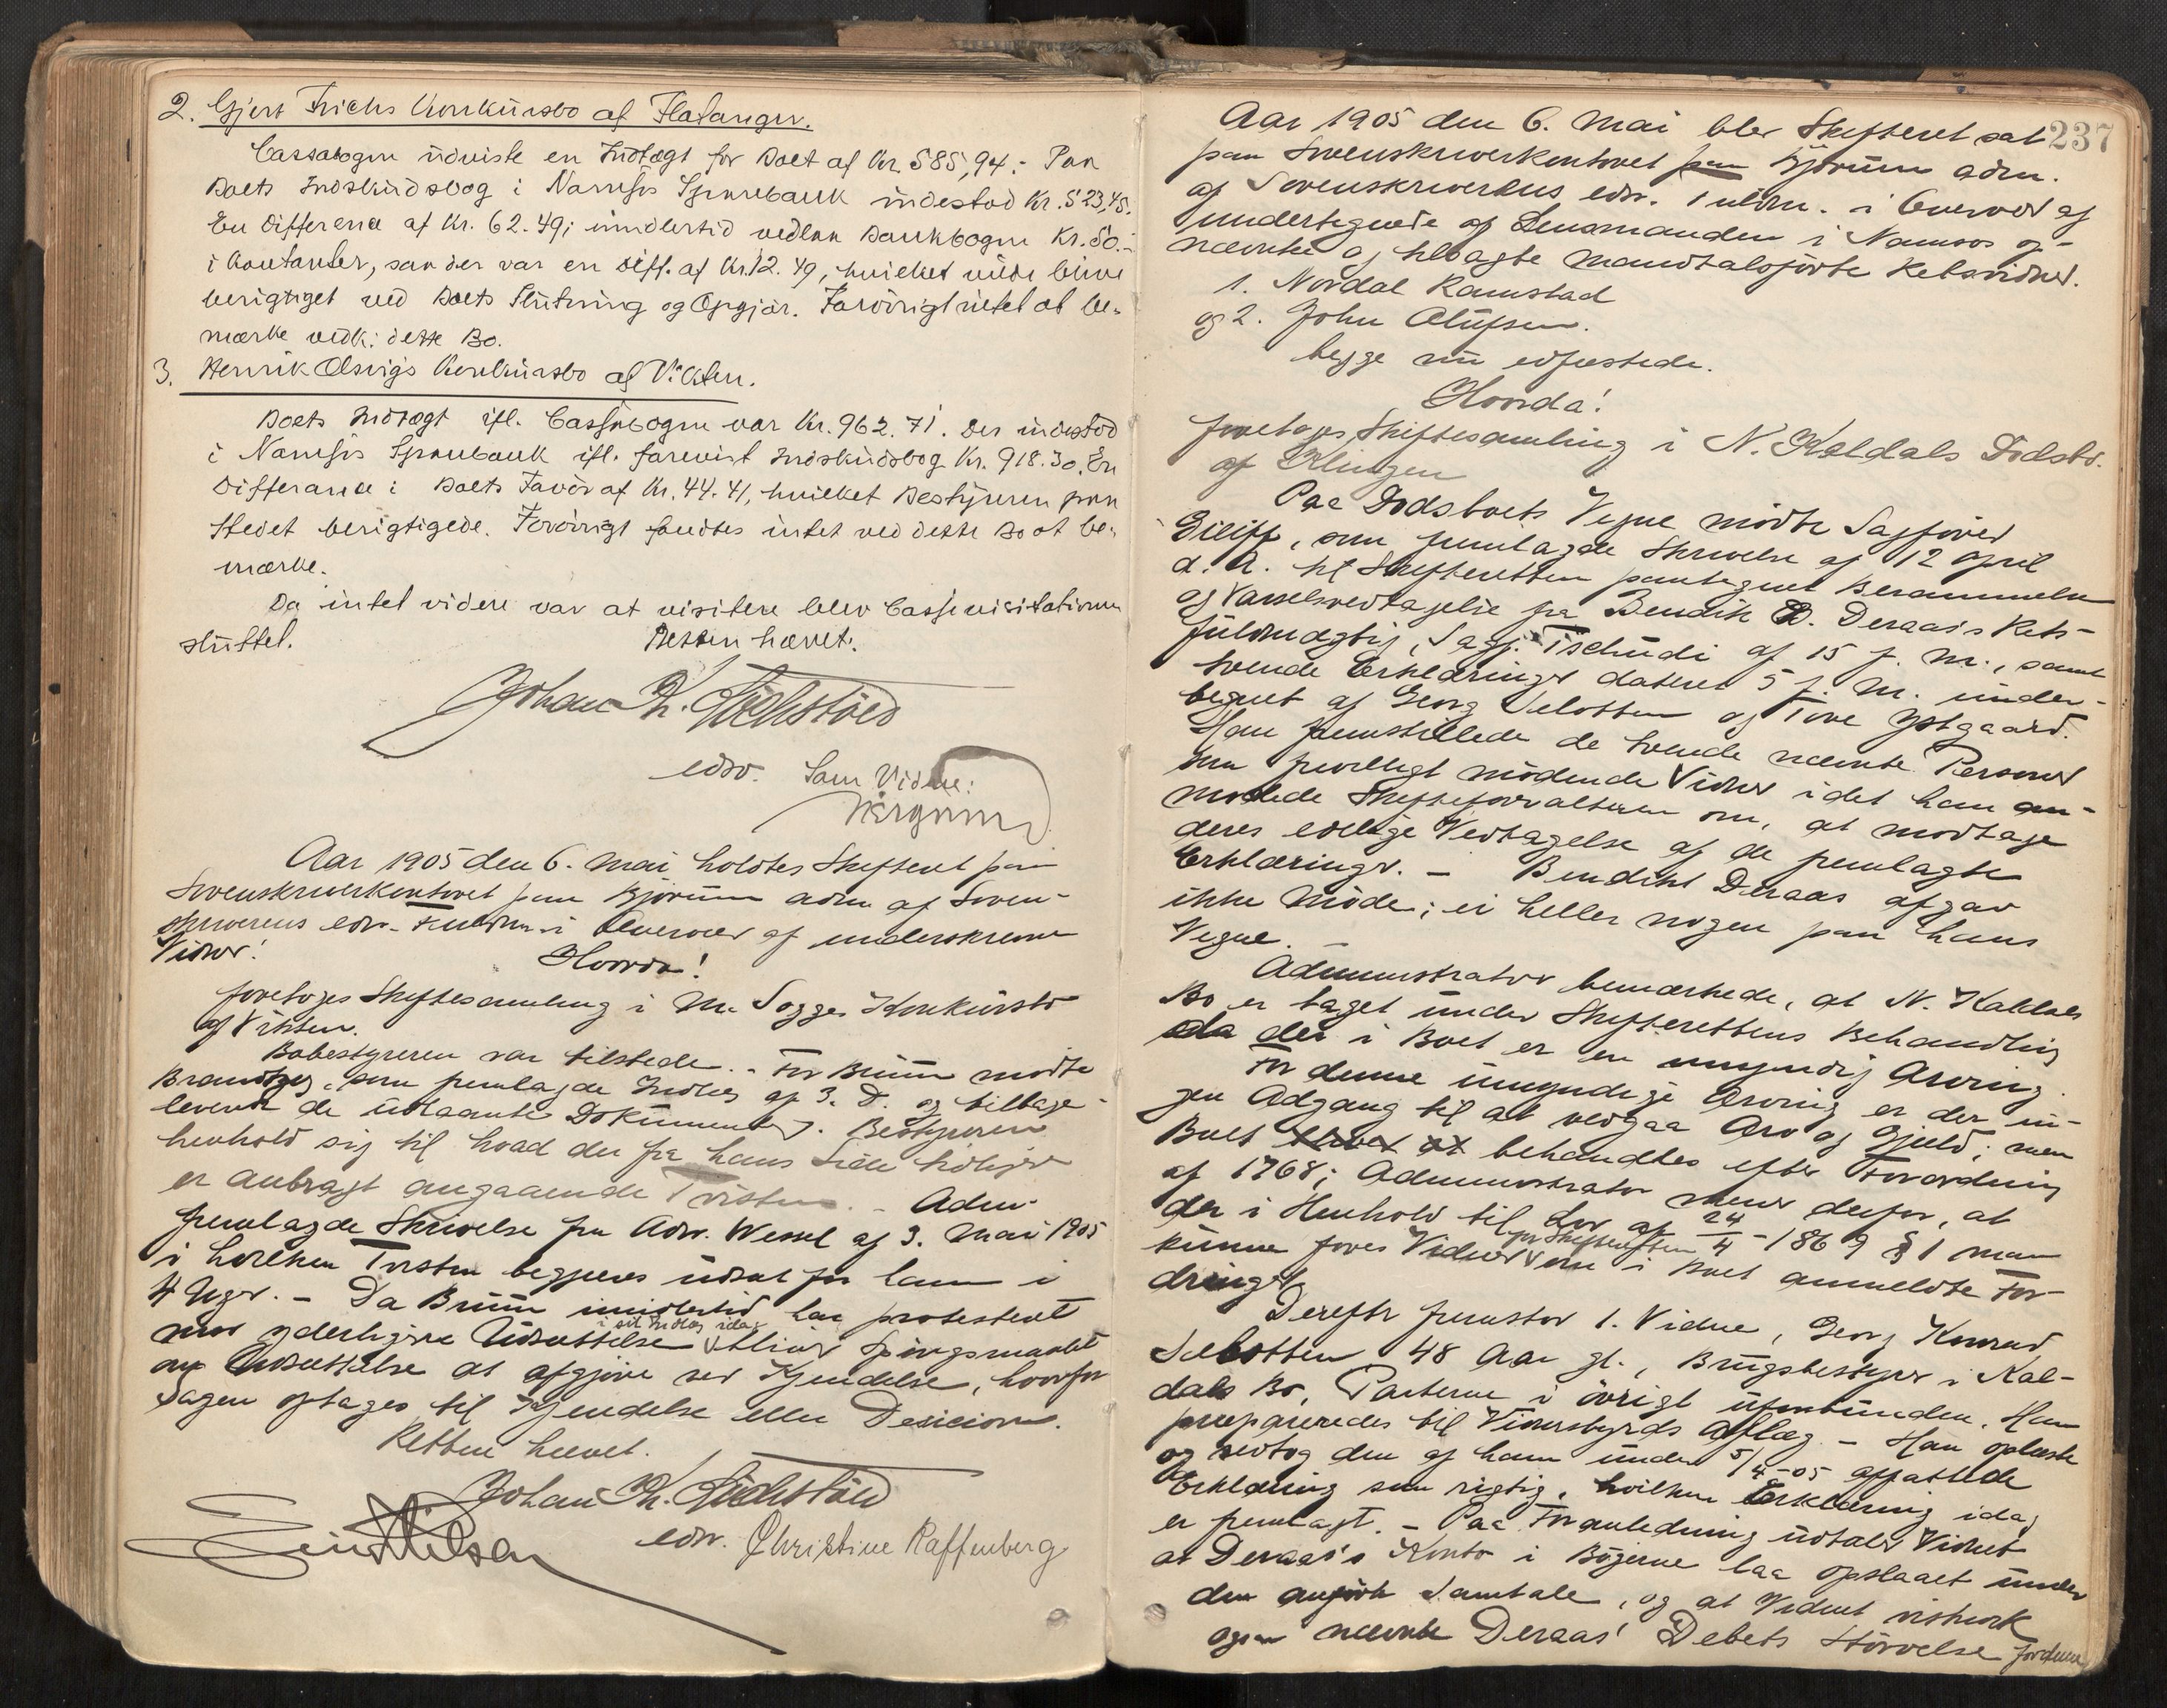 2. Gjert Frichs Konkursbo af Flatanger.
Cassabogen udviste en Indtægt for Boet af Kr. 585,94: Paa
Boets Indskudsbog i Namsos Sparebank indestod Kr. 523,45.
En Difference af Kr. 62.49; imidlertid vedlaa Bankbogen Kr. 50.-
i Contanter, saa der var en Diff. af Kr. 12.49, hvilket vilde blive
berigtiget ved Boets Slutning og Opgjør. Forøvrigt intet at be-
mærke vedk: dette Bo.
3. Henrik Olsvigs Konkursbo af Vikten.
Boets Indtægt ifl. Cassabogen var Kr. 962.71. Der indestod
i Namsos Sparebank ifl. forevist Indskudsbog Kr. 918.30. En
Differance i Boets Favør af Kr. 44.41, hvilket Bestyreren paa
Stedet berigtigede. Forøvrigt fandtes intet ved dette Bo at be-
mærke.
Da intet videre var at visitere blev Cassevisitationen
sluttet. Retten hævet.
Johan K.
edsv. Som Vidne:
Aar 1905 den 6. Mai holdtes Skifteret paa
Sorenskriverkontoret paa Bjørum adm af Soren-
skriverens edsv. Fuldm. i Overvær af underskrevne
Vidner:
Hvorda!
foretoges Skiftesamling i M. Sogges Konkursbo
af Vikten.
Bobestyreren var tilstede. - For Bruun mødte
Brandtzeg, som fremlagde Indlæg af 3. D. og tilbage-
leverte de udlaante Dokumenter. Bestyreren
henholdt sig til hvad der fra hans Side tidligere
er anbragt angaaende Tvisten. - Adm.
fremlagde Skrivelse fra Adv. Wessel af 3. Mai 1905
i hvilken Tvisten begjæres udsat for ham i
4 Uger. - Da Bruun imidlertid har protesteret
i sit Indlæg idag
mod yderligere Udsættelse bliver Spørgsmaalet
om Udsættelse at afgjøre ved Kjendelse, hvorfor
Sagen optages til Kjendelse eller Decision.
Retten hævet.
Johan K.
edsv. Christine Raffenberg
237
Aar 1905 den 6. Mai blev Skifteret sat
paa Sorenskriverkontoret paa Bjørum adm.
af Sorenskriverens edsv. Fuldm. i Overvær af
undertegnede af Lensmanden i Namsos op-
nævnte og tilsagte mandtalsførte Retsvidner.
1. Nordal Ramstad
og 2. John Olufsen.
begge nu edfæstede.
Hvorda!
foretoges Skiftesamling i N. Kaldals Dødsbo
af Klingen
Paa Dødsboets Vegne mødte Sagfører
Eiliff, som fremlagde Skrivelse af 12 April
d. A. til Skifteretten paategnet Berammelse
og Varselsvedtagelse fra Bendik B. Deraas's Rets-
fuldmægtig, Sagf. Tschudi af 15 f. M., samt
tvende Erklæringer dateret 5 f. M. under-
tegnet af Georg Selotten og Tore Ystgaard.
Han fremstillede de tvende nævnte Personer
som frivilligt mødende Vidner idet han an-
modede Skifteforvalteren om, at modtage
deres edelige Vedtagelse af de fremlagte
Erklæringer. - Bendikt Deraas afgav
ikke Møde; ei heller nogen paa hans
Vegne. -
Administrator bemærkede, at N. Kaldals
Bo er taget under Skifterettens Behandling
da der i Boet er en umyndig Arving.
For denne umyndige Arving er der in-
gen Adgang til at vedgaa Arv og Gjeld; men
Boet behandles efter Forordning
af 1768; Administrator mener derfor, at
der i Henhold til Lov af 24/4 - 1869 § 1 maa
for Skifteretten
kunne føres Vidner om i Boet anmeldte For-
dringer.
Derefter fremstod 1. Vidne, Georg Konrad
Selotten 48 Aar gl., Brugsbestyrer i Kal-
dals Bo, Parterne i øvrigt uforbunden. Han
præpareredes til Vidnesbyrds Aflæg. - Han oplæste
og vedtog den af ham under 5/4-05 affattede
Erklæring som rigtig, hvilken Erklæring idag
er fremlagt. - Paa Foranledning udtaler Vidnet
at Deraas's Konto i Bøgerne laa opslaaet under
den anførte Samtale, og at Vidnet
ogsaa nævnte Deraas' Debets Størrelse